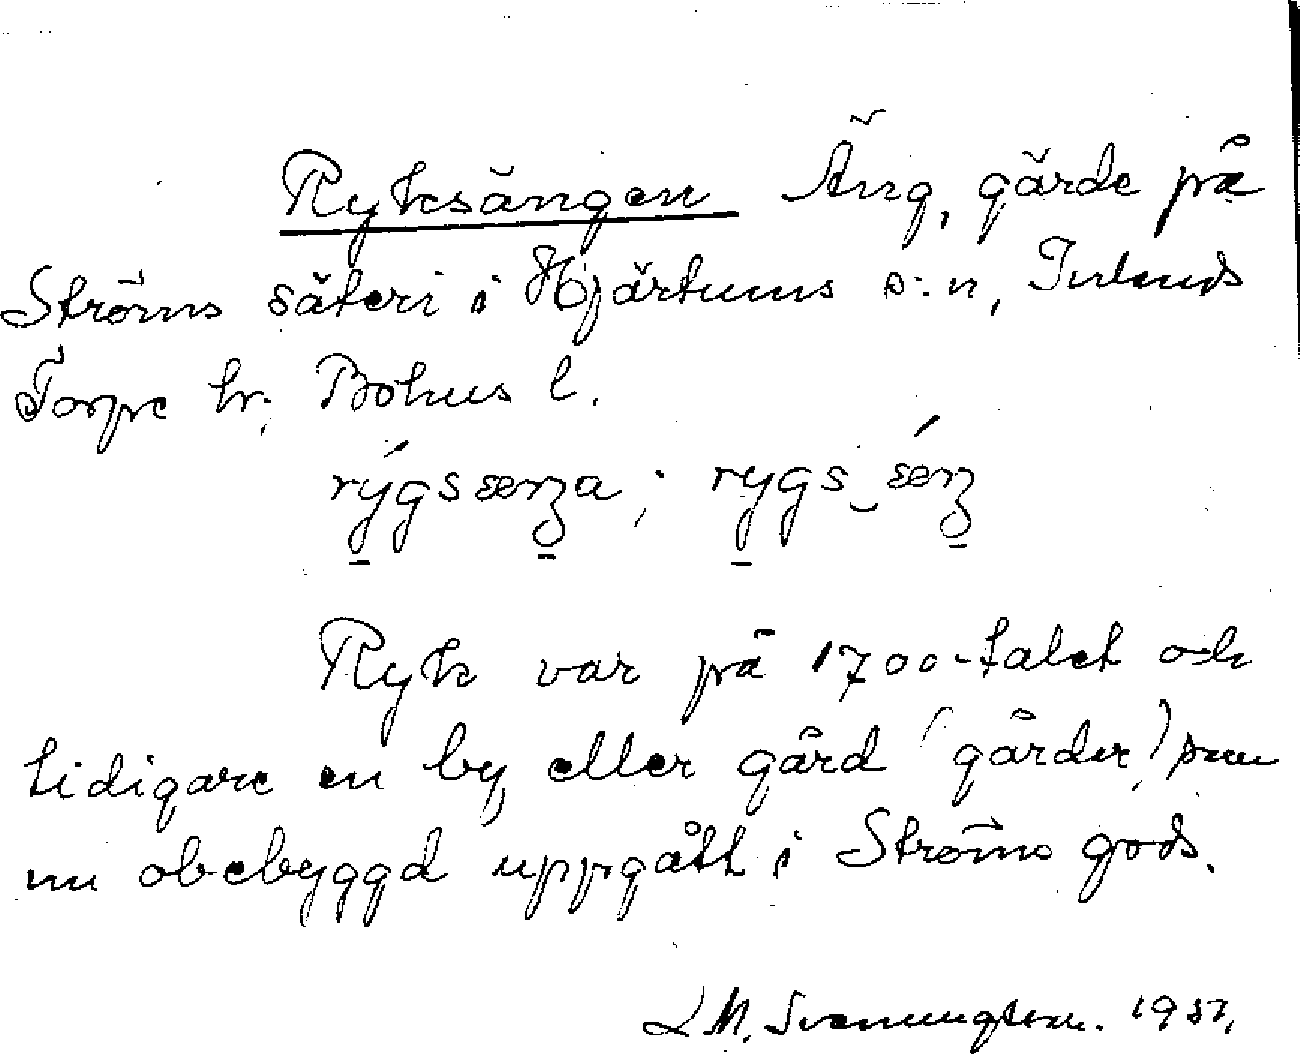 Ryksängen Äng, gärde på
Ströms säteri i Hjärtums s:n, Inlands
Torpe hr, Bohus l.
rýgsænga; rygs sǽng
Ryk var på 1700-talet och
tidigare en by eller gård (gårdar) som
nu obebyggd uppgått i Ströms gods.
L M. Svenungsson.